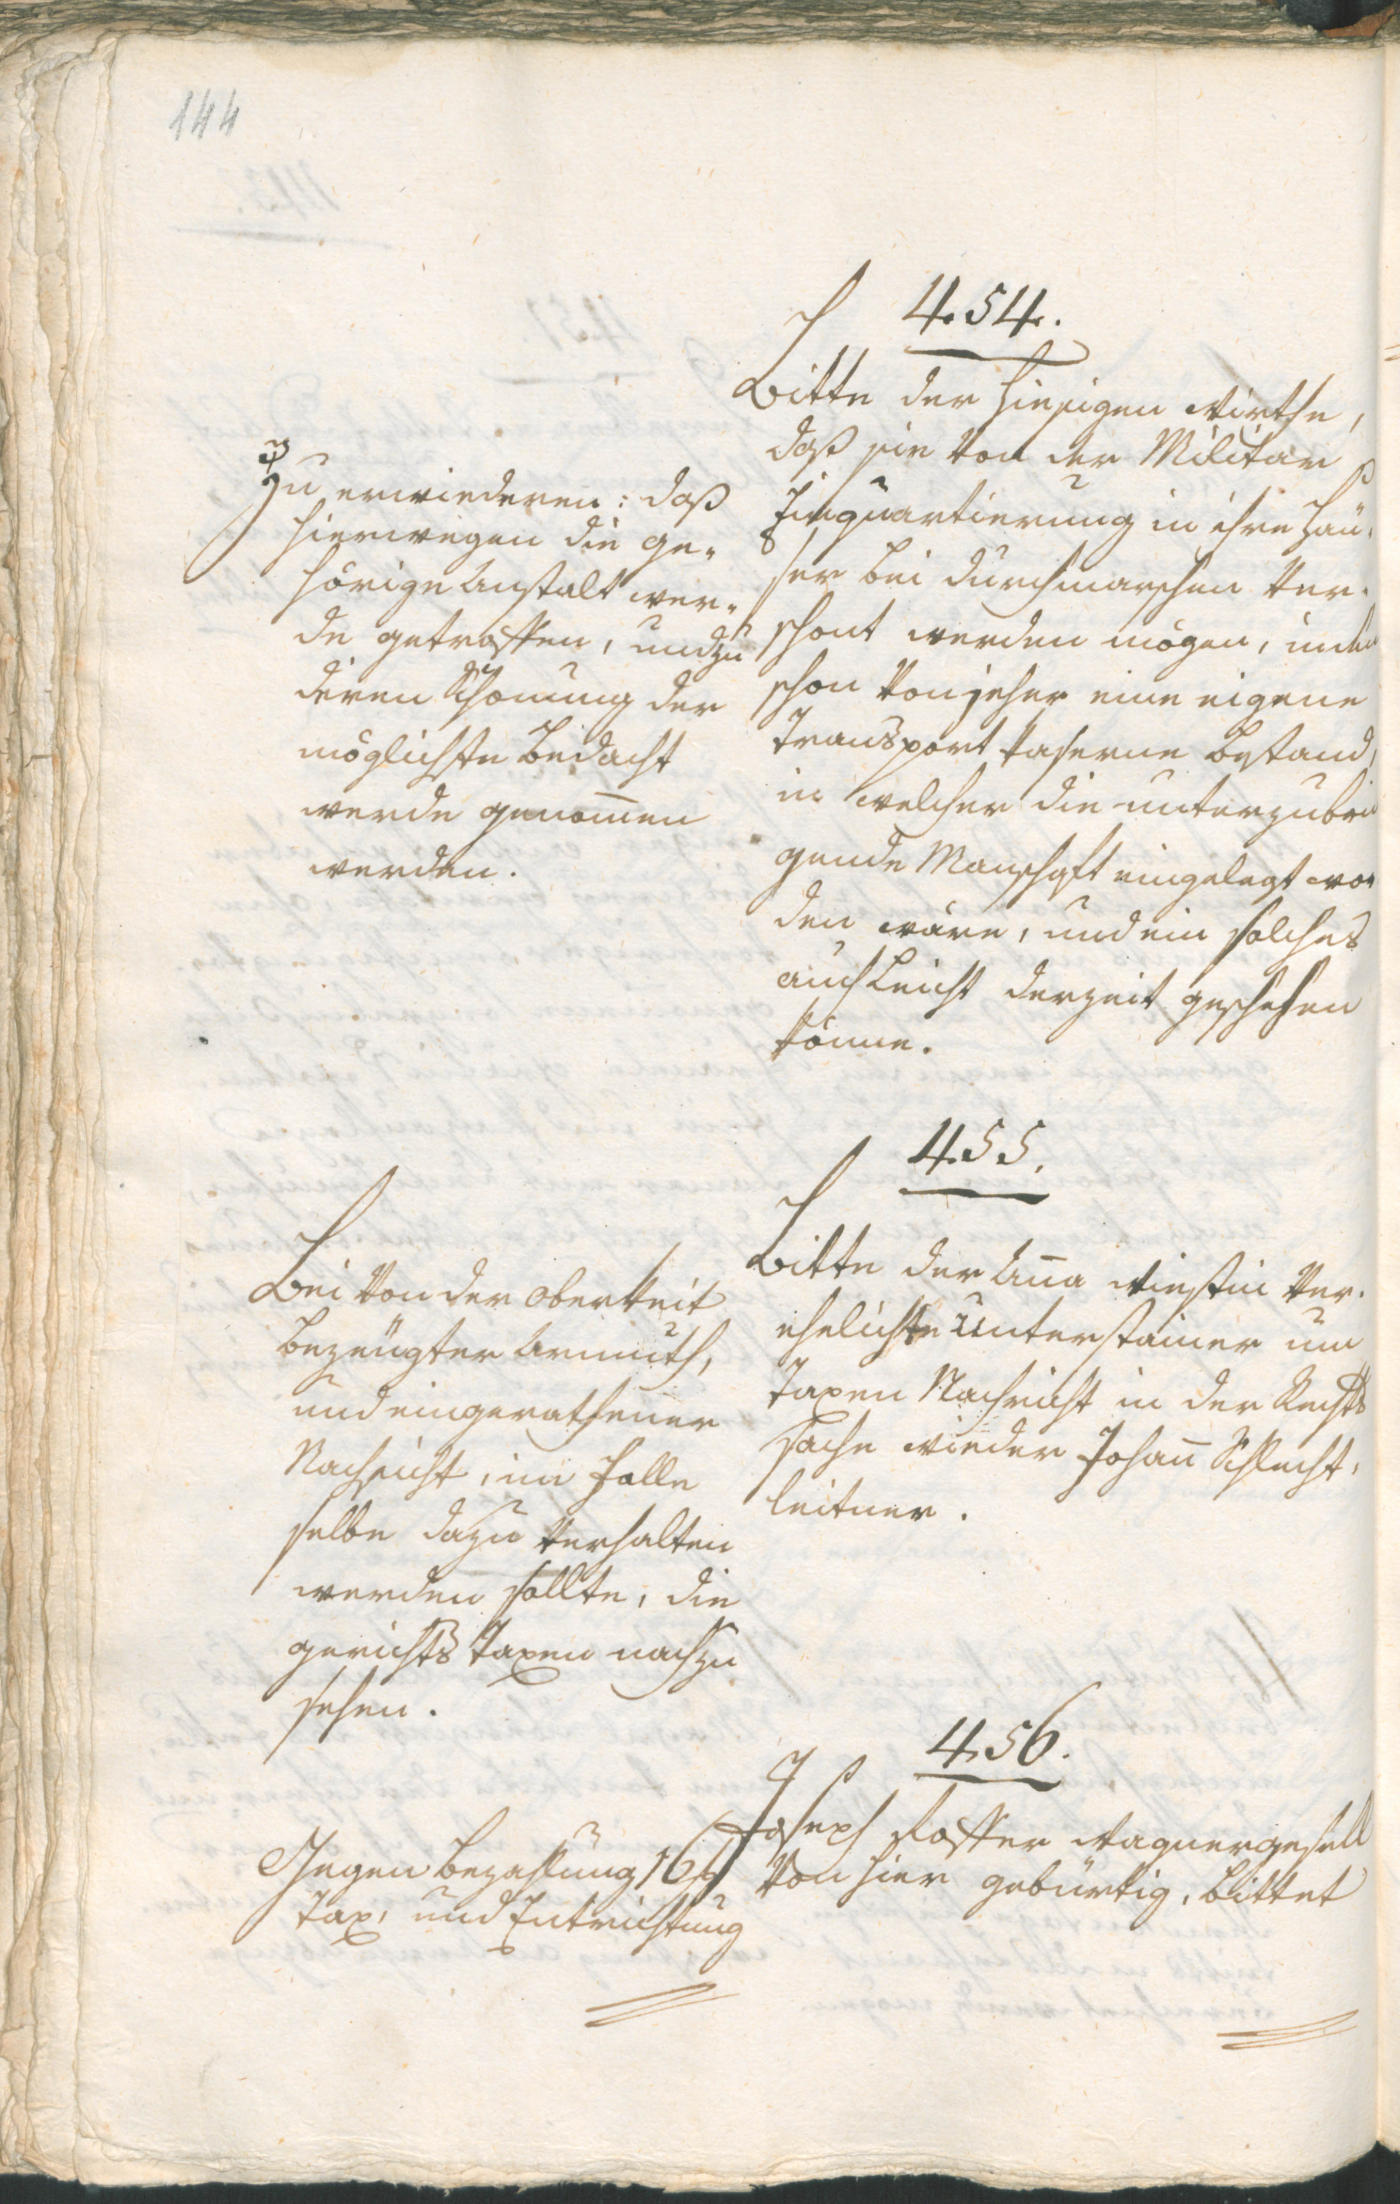 144
454.
Bitte der hiesigen Wirthe,
daß sie von der Militar
Einquartierung in ihre Häu-
ser bei Durchmarschen ver-
schont werden mögen, indem
schon von jeher eine eigene
Transport Kaserne bestand,
in welcher die unterzubrin
gende Manschaft eingelegt wor
den wäre, und ein solches
auch leicht derzeit geschehen
könne.
Zu erwiederen: daß
hierwegen die ge-
hörige Anstalt wer-
de getroffen, und zu
deren Schonung der
möglichste Bedacht
werde genom̅en
werden.
455.
Bitte der An̅a Wiestin ver-
ehelichte Unterstainer um
Taxen Nachsicht in der Rechts
sache wieder Johan̅ Schlecht-
leitner.
Bei von der Oberkeit
bezeugter Armuth,
und eingerathener
Nachsicht, im Falle
selbe dazu verhalten
werden sollte, die
gerichts Taxen nachzu
sehen.
456.
Joseph Koffer Wagnergesell
von hier gebürtig, bittet
Gegen Bezahlung 16 f
Tax, und Entrichtung